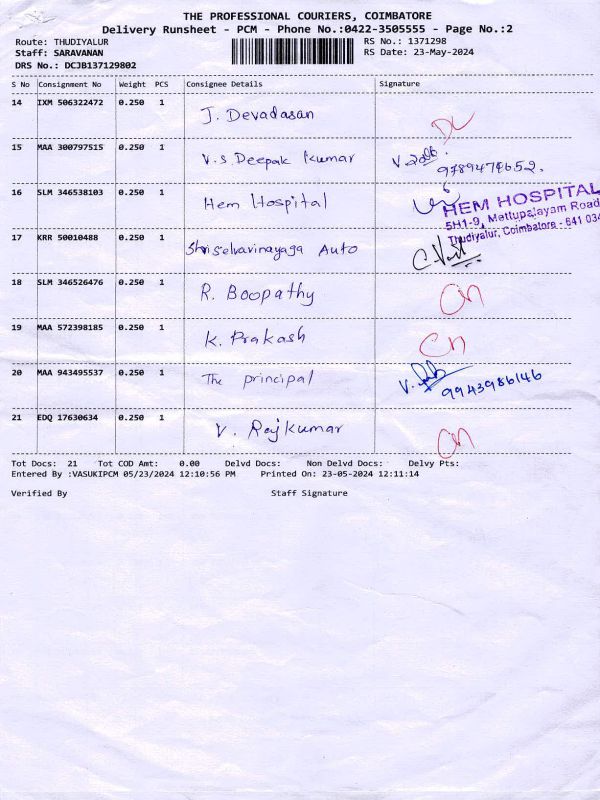 THE PROFESSIONAL COURIERS, COIMBATORE
Delivery Runsheet - PCM - Phone No.:0422-3505555 - Page No.:2
Route: THUDIYALUR RS No.: 1371298
Staff: SARAVANAN RS Date: 23-May-2024
DRS No.: DCJB137129802
S No Consignment No Weight PCS Consignee Details Signature
14 IXM 506322472 0.250 1 J. Devadasan
15 MAA 300797515 0.250 1 V.S. Deepak Kumar 9789479652.
16 SLM 346538103 0.250 1 Hem Hospital
HEM HOSPITAL
5H1-9, Mettupalayam Road
Thudiyalur, Coimbatore - 641 034
17 KRR 50010488 0.250 1 Shriselvavinayaga Auto
18 SLM 346526476 0.250 1 R. Boopathy
19 MAA 572398185 0.250 1 K. Prakash
20 MAA 943495537 0.250 1 The principal 9943986146
21 EDQ 17630634 0.250 1 V. Rajkumar
Tot Docs: 21 Tot COD Amt: 0.00 Delvd Docs: Non Delvd Docs: Delvy Pts:
Entered By :VASUKIPCM 05/23/2024 12:10:56 PM Printed On: 23-05-2024 12:11:14
Verified By Staff Signature